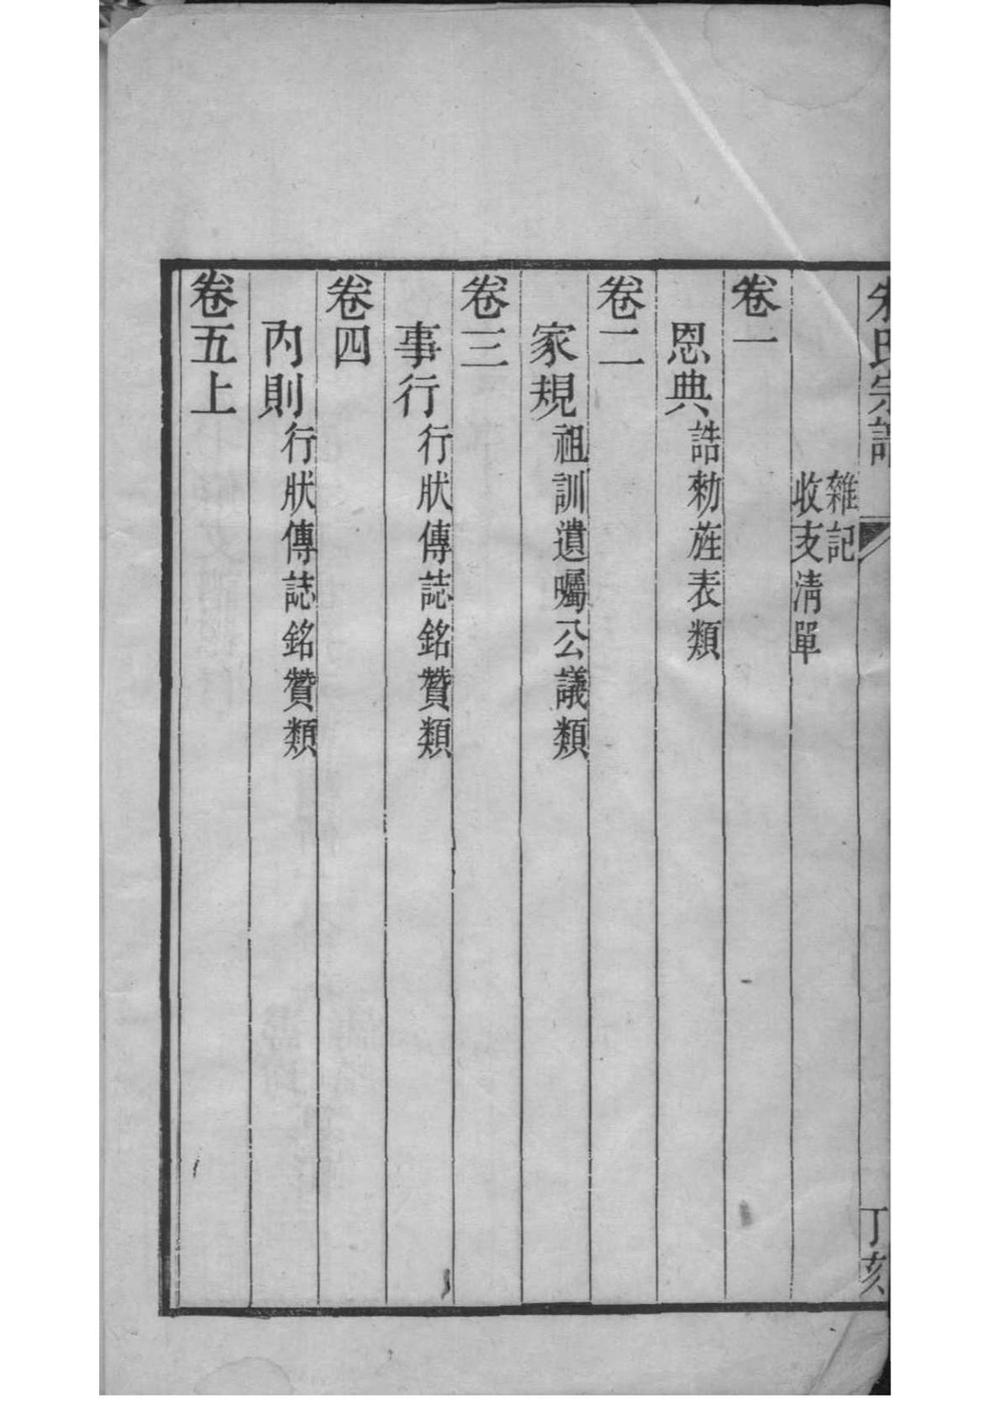 氏宗譜
丁亥
雜記
收支清單
卷一
恩典誥勑旌表類
卷二
家規祖訓遺囑公議類
卷三
事行行狀傳誌銘贊類
卷四
內則行狀傳誌銘贊類
卷五上